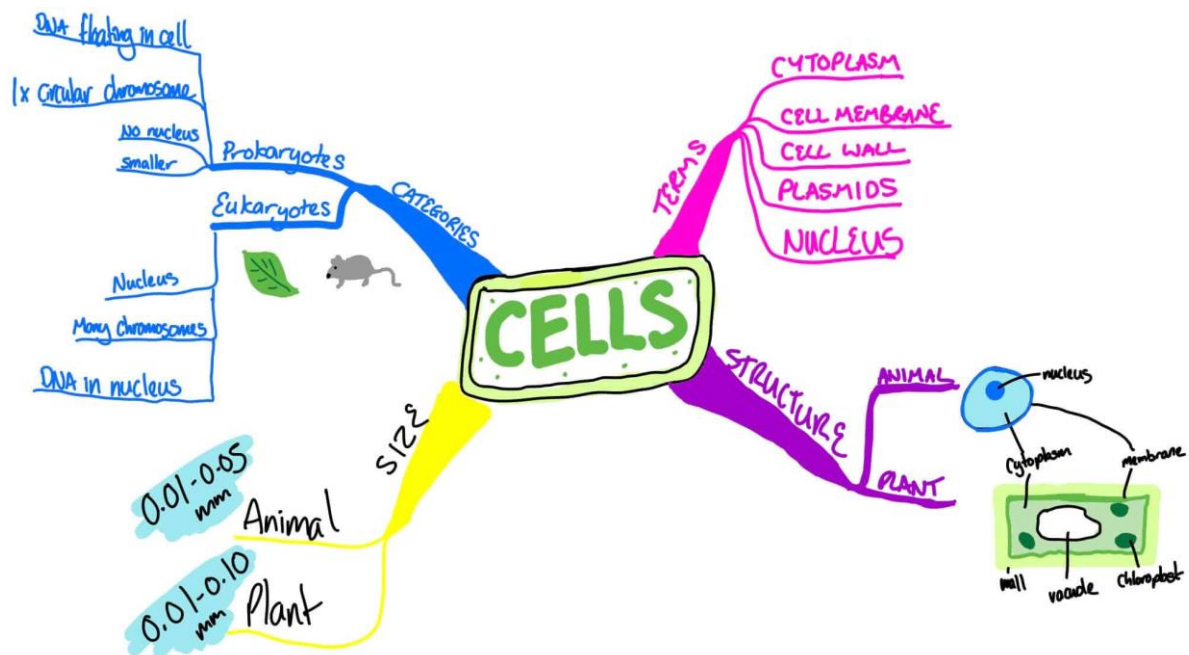 CELLS
CATEGORIES
Prokaryotes
DNA floating in cell
1x circular chromosome
No nucleus
smaller
Eukaryotes
Nucleus
Many chromosomes
DNA in nucleus
TERMS
CYTOPLASM
CELL MEMBRANE
CELL WALL
PLASMIDS
NUCLEUS
STRUCTURE
ANIMAL
nucleus
cytoplasm
membrane
PLANT
wall
vacuole
chloroplast
SIZE
0.01-0.05
mm
Animal
0.01-0.10
mm
Plant